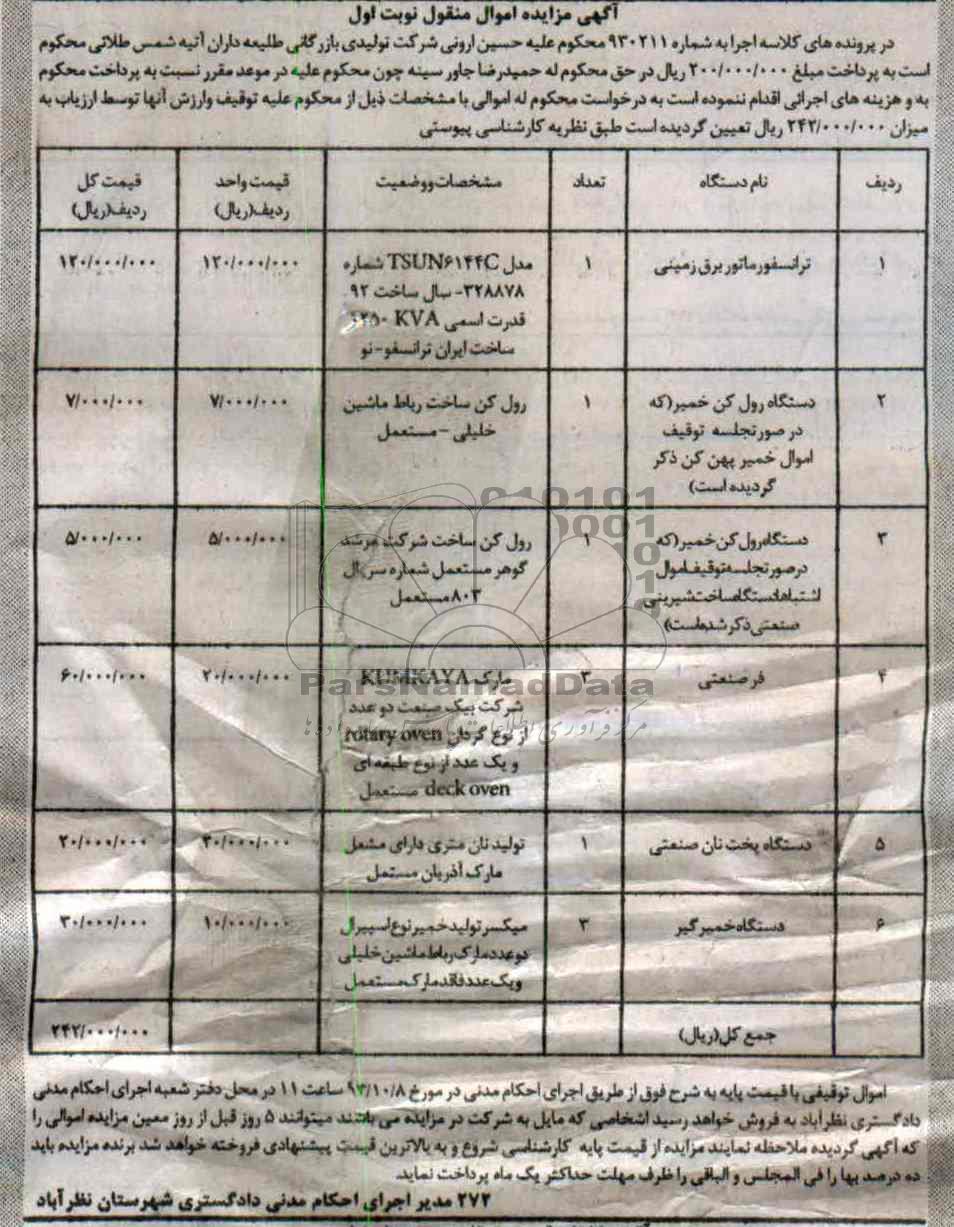 آگهی مزایده اموال منقول نوبت اول
در پرونده های کلاسه اجرا به شماره ۹۳۰۲۱۱ محکوم علیه حسین ارونی شرکت تولیدی بازرگانی طلیعه داران آتیه شمس طلائی محکوم
است به پرداخت مبلغ ۲۰۰/۰۰۰/۰۰۰ ریال در حق محکوم له حمیدرضا جاور سینه چون محکوم علیه در موعد مقرر نسبت به پرداخت محکوم
به و هزینه های اجرائی اقدام ننموده است به درخواست محکوم له اموالی با مشخصات ذیل از محکوم علیه توقیف وارزش آنها توسط ارزیاب به
میزان ۲۴۲/۰۰۰/۰۰۰ ریال تعیین گردیده است طبق نظریه کارشناسی پیوستی
ردیف نام دستگاه تعداد مشخصات ووضعیت قیمت واحد قیمت کل
ردیف(ریال) ردیف(ریال)
۱ ترانسفورماتور برق زمینی ۱ مدل TSUN۶۱۴۴C شماره ۱۲۰/۰۰۰/۰۰۰ ۱۲۰/۰۰۰/۰۰۰
۳۲۸۸۷۸- سال ساخت ۹۲
قدرت اسمی KVA
ساخت ایران ترانسفو-نو
۲ دستگاه رول کن خمیر(که ۱ رول کن ساخت رباط ماشین ۷/۰۰۰/۰۰۰ ۷/۰۰۰/۰۰۰
در صورتجلسه توقیف خلیلی -مستعمل
اموال خمیر پهن کن ذکر
گردیده است)
۳ دستگاه رول کن خمیر(که ۱ رول کن ساخت شرکت مرشد ۵/۰۰۰/۰۰۰ ۵/۰۰۰/۰۰۰
درصورتجلسه توقیف اموال گوهر مستعمل شماره سریال
اشتباها دستگاه ساخت شیرینی ۸۰۳ مستعمل
صنعتی ذکر شده است)
۴ فر صنعتی ۳ مارک KUMKAYA ۲۰/۰۰۰/۰۰۰ ۶۰/۰۰۰/۰۰۰
شرکت پیک صنعت دو عدد
از نوع گردان rotary oven
و یک عدد از نوع طبقه ای
deck oven مستعمل
۵ دستگاه پخت نان صنعتی ۱ تولید نان متری دارای مشعل ۲۰/۰۰۰/۰۰۰ ۲۰/۰۰۰/۰۰۰
مارک آذریان مستعمل
۶ دستگاه خمیر گیر ۳ میکسر تولید خمیر نوع اسپیرال ۱۰/۰۰۰/۰۰۰ ۳۰/۰۰۰/۰۰۰
دو عدد مارک رباط ماشین خلیلی
ویک عدد فاقد مارک مستعمل
جمع کل(ریال) ۲۴۲/۰۰۰/۰۰۰
اموال توقیفی با قیمت پایه به شرح فوق از طریق اجرای احکام مدنی در مورخ ۹۳/۱۰/۸ ساعت ۱۱ در محل دفتر شعبه اجرای احکام مدنی
دادگستری نظرآباد به فروش خواهد رسید اشخاصی که مایل به شرکت در مزایده می باشند میتوانند ۵ روز قبل از روز معین مزایده اموالی را
که آگهی گردیده ملاحظه نمایند مزایده از قیمت پایه کارشناسی شروع و به بالاترین قیمت پیشنهادی فروخته خواهد شد برنده مزایده باید
ده درصد بها را فی المجلس و الباقی را ظرف مهلت حداکثر یک ماه پرداخت نماید.
۲۷۲ مدیر اجرای احکام مدنی دادگستری شهرستان نظرآباد
ParsNamadData